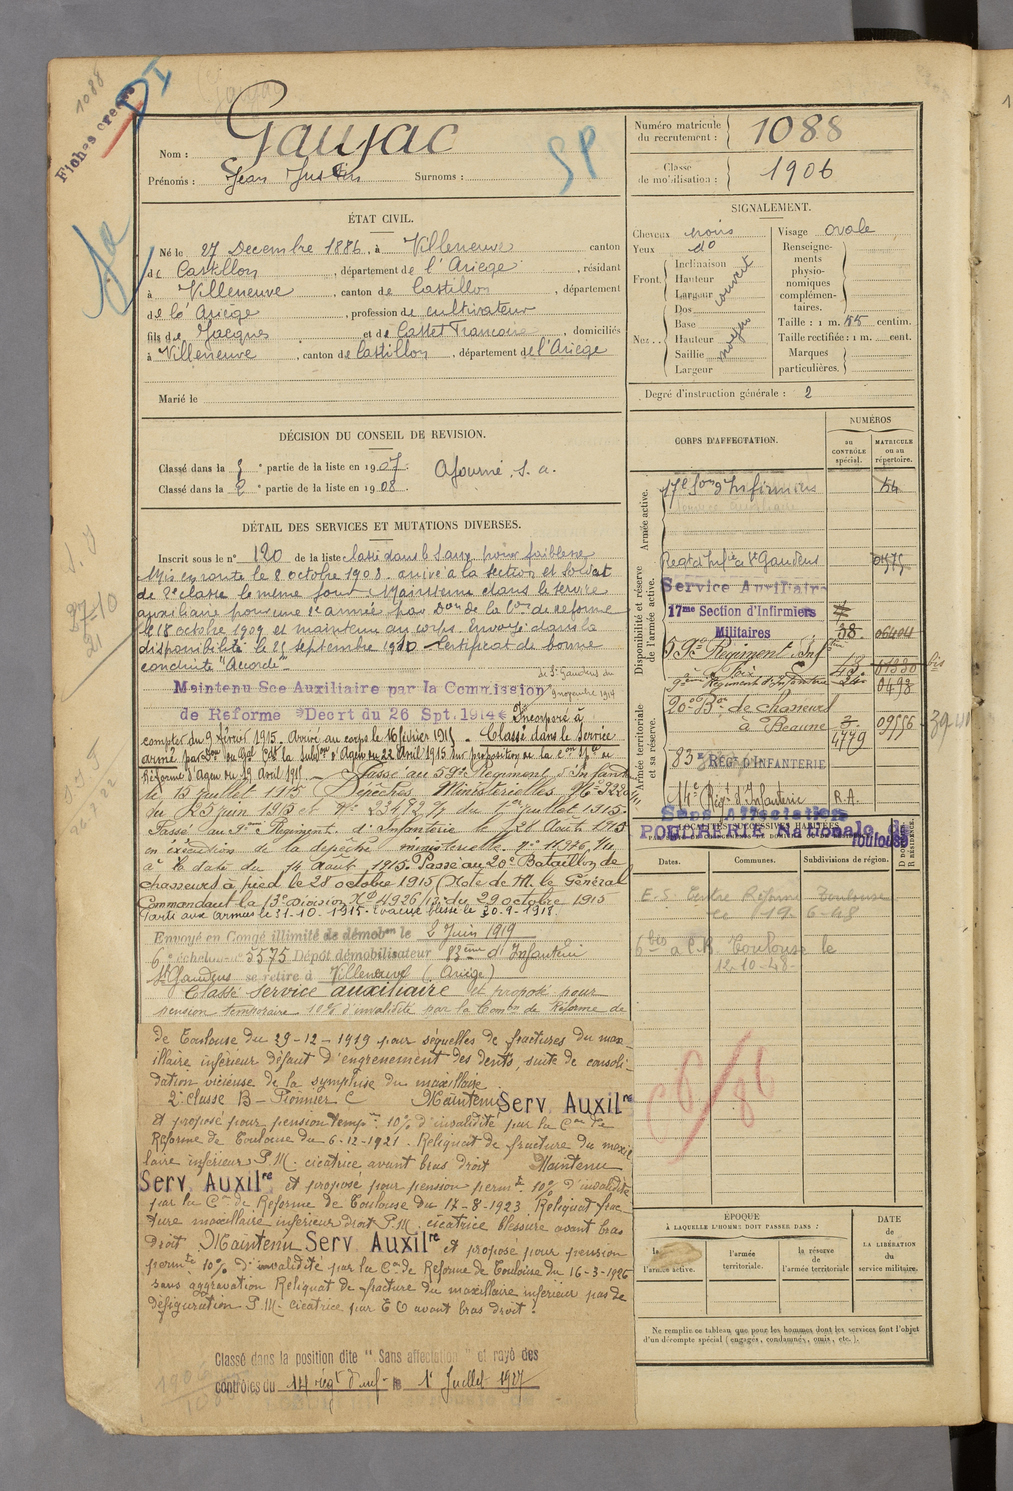 1088
Fiches
Nom : Gaujac
Prénoms : Jean Justin Surnoms :
SP
Numéro matricule du recrutement : 1088
Classe de mobilisation : 1906
ÉTAT CIVIL.
Né le 27 Decembre 1886, à Villeneuve canton
de Castillon, département de l'Ariège, résidant
à Villeneuve, canton de Castillon, département
de l'Ariège, profession de cultivateur
fils de Jacques et de Castet Francoise, domiciliés
à Villeneuve, canton de Castillon, département de l'Ariège
Marié le
SIGNALEMENT.
Cheveux noirs
Yeux do
Front Inclinaison Hauteur Largeur couvert
Nez Dos Base Hauteur Saillie Largeur moyen
Visage ovale
Renseignements physionomiques complémentaires.
Taille : 1 m. 55 centim.
Taille rectifiée : 1 m. cent.
Marques particulières.
Degré d'instruction générale : 2
DÉCISION DU CONSEIL DE REVISION.
Classé dans la 5e partie de la liste en 1907. Ajourné, s. a.
Classé dans la 2e partie de la liste en 1908.
DÉTAIL DES SERVICES ET MUTATIONS DIVERSES.
Inscrit sous le n° 120 de la liste classé dans le S. aux. pour faiblesse
Mis en route le 8 octobre 1908. arrivé à la section et soldat
de 2e classe le même jour. Maintenu dans le service
auxiliaire pour une 2e année par Don de la Con de reforme
le 18 octobre 1909 et maintenu au corps. Envoyé dans la
disponibilité le 25 septembre 1910 Certificat de bonne
conduite "Accordé"
Maintenu Sce Auxiliaire par la Commission de St Gaudens du 9 novembre 1914
de Reforme Décrt du 26 Spt. 1914 Incorporé à
compter du 9 février 1915. Arrivé au corps le 16 février 1915. Classé dans le Service
armé par Don du Gal Cdt la Subdon d'Agen du 22 Avril 1915 sur proposition de la Con Sple de
Réforme d'Agen du 19 Avril 1915 Passé au 59e Régiment d'Infanterie
le 15 juillet 1915 Dépêches Ministerielles
du 25 juin 1915 et No 23492 du 1er juillet 1915.
Passé au 9me Regiment d'Infanterie le 28 Août 1915
en exécution de la depeche ministerielle
à la date du 14 Août 1915. Passé au 20e Bataillon de
chasseurs à pied le 28 octobre 1915 (Note de M. le Général
Commandant la 13e Division No 4926 du 29 octobre 1915
Parti aux armées le 31-10-1915. Evacué blessé le 30-9-1918.
Envoyé en Congé illimité de démobon le 2 Juin 1919
6e échelon no 5575 Dépôt démobilisateur 83ème d'Infanterie
St Gaudens se retire à Villeneuve (Ariège)
Classé service auxiliaire et proposé pour
pension temporaire 10% d'invalidité par la Comon de Réforme de
de Toulouse du 29-12-1919 pour séquelles de fractures du max-
illaire inférieur défaut d'engrenement des dents, suite de consoli-
dation vicieuse de la symphise du maxillaire.
2e classe B – Pionnier C Maintenu Serv. Auxilre
et proposé pour pension tempre 10% d'invalidité par la Con de
Réforme de Toulouse du 6-12-1921. Reliquat de fracture du maxil
laire inférieur P.M. cicatrice avant bras droit Maintenu
Serv. Auxilre et proposé pour pension permte 10% d'invalidité
par la Con de Reforme de Toulouse du 17-8-1923 Reliquat frac
ture maxillaire inferieur droit P.M. cicatrice blessure avant bras
droit. Maintenu Serv. Auxilre et proposé pour pension
permte 10% d'invalidité par la Con de Reforme de Toulouse du 16-3-1926
sans aggravation Reliquat de fracture du maxillaire inferieur pas de
défiguration P.M. cicatrice par E O avant bras droit.
Classé dans la position dite "Sans affectation" et rayé des
contrôles du 14 régt d'inf le 1er Juillet 1927
CORPS D'AFFECTATION.
NUMÉROS
au CONTRÔLE spécial.
MATRICULE ou au répertoire.
Armée active.
17e Son d'Infirmiers 54
Service Auxiliaire
Disponibilité et réserve de l'armée active.
Regt d'Infie de St Gaudens
Service Auxiliaire
17me Section d'Infirmiers Militaires 38
59e Régiment Inf
Foix
9ème Régiment d'Infanterie 0498
20e Bon de chasseurs
à Beaune 4779 09556
Armée territoriale et sa réserve.
83e RÉGt D'INFANTERIE
14e Régt d'Infanterie R.A.
Sans Affectation
POUDRERIE Nationale de Toulouse
LOCALITÉS SUCCESSIVES HABITÉES
Dates. Communes. Subdivisions de région. D domicile R résidence.
E.S. Centre Réforme Toulouse
le 19-6-48
6 bis à C.R. Toulouse le
12-10-48.
C6/86
ÉPOQUE
À LAQUELLE L'HOMME DOIT PASSER DANS :
l'armée active.
l'armée territoriale.
la réserve de l'armée territoriale
DATE de LA LIBÉRATION du service militaire.
Ne remplir ce tableau que pour les hommes dont les services font l'objet
d'un décompte spécial (engagés, condamnés, omis, etc.).